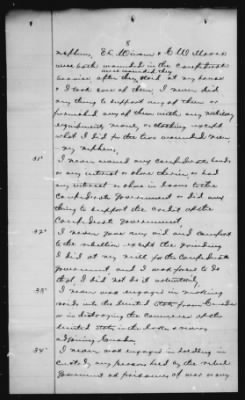 8
nephew Ed. & C W Moore
were both wounded in the Confederate
were wounded they
service after they staid at my house
& I took care of them, I never did
any thing to support any of them or
furnished any of them with any military
equipments money or clothing except
what I did for the two wounded men
my nephews.
31st I never owned any Confederate bonds
or any interest or share therein or had
any interest or share in loans to the
Confederate Government or did any
thing to support the credit of the
Confederate Government.
32d I never gave any aid and comfort
to the rebellion except the grinding
I did at my mill for the Confederate
Government, and I was forced to do
that I did not do it voluntarily
33d I never was engaged in making
raids into the United States from Canada
or in destroying the commerce of the
United States in the lakes & rivers
adjoining Canada.
34th I never was engaged in holding in
custody any persons held by the rebel
Government as prisoners of war or any